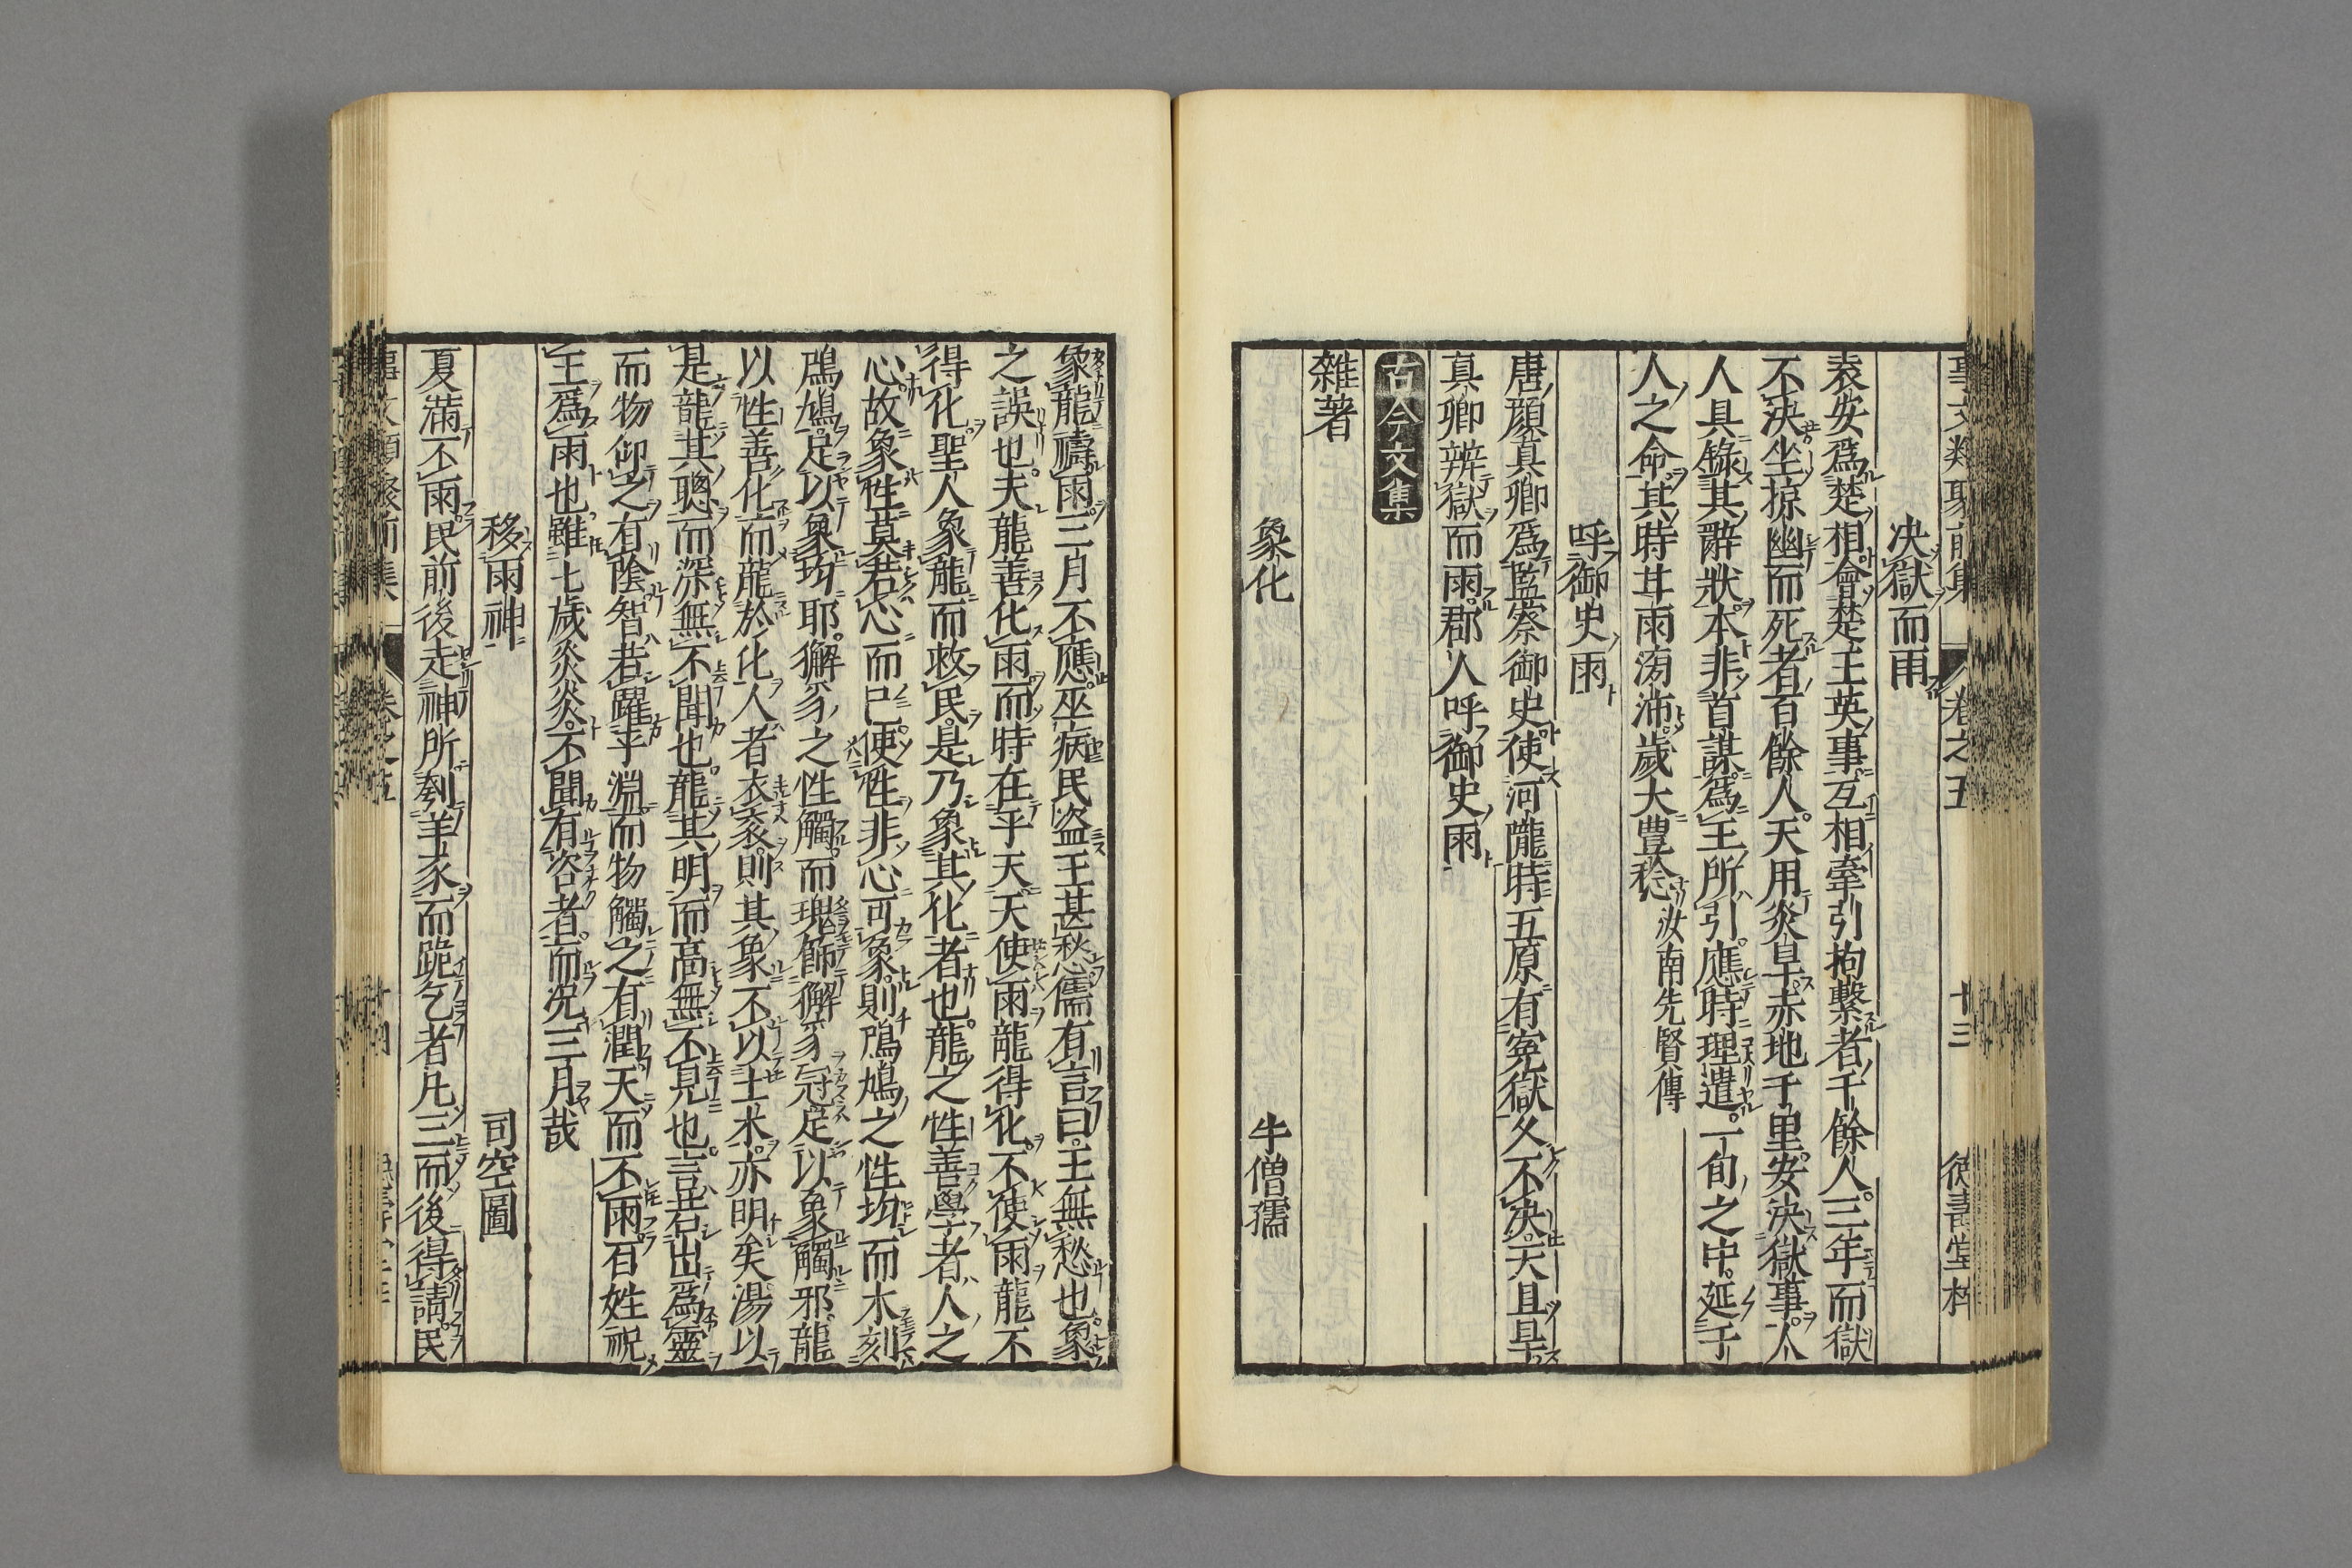 事文類聚前集 卷之五 十三 德壽堂梓
決獄而雨
袁安爲楚相會楚王英事互相牽引拘繫者千餘人三年而獄
不決坐掠幽而死者百餘人天用炎旱赤地千里安決獄事人
人具錄其辭狀本非首謀爲王所引應時理遣一旬之中延千
人之命其時甘雨滂沛歲大豊稔汝南先賢傳
呼御史雨
唐顔真卿爲監察御史使河隴時五原有寃獄久不決天且旱
真卿辨獄而雨郡人呼御史雨
古今文集
雜著
象化 牛僧孺
象龍禱雨三月不應巫病民盗王甚愁儒有言曰王無愁也象
之誤也夫龍善化雨而時在乎天天使雨龍得化不使雨龍不
得化聖人象龍而救民是乃象其化者也龍之性善學者人之
心故象性莫若心而已使性非心可象則鳲鳩之性均而木刻
鳲鳩足以象均耶獬豸之性觸而瑰飾獬豸冠足以象觸邪龍
以性善化而龍於化人者衣衮則其象不以土木亦明矣湯以
是龍其聰而深無不聞也龍其明而高無不見也言若出爲靈
而物仰之有陰智若躍乎淵而物觸之有潤天而不雨百姓祝
王爲雨也雖七歲炎炎不聞有咨者而况三月哉
移雨神 司空圖
夏滿不雨民前後走神所刲羊豕而跪乞者凡三而後得請民